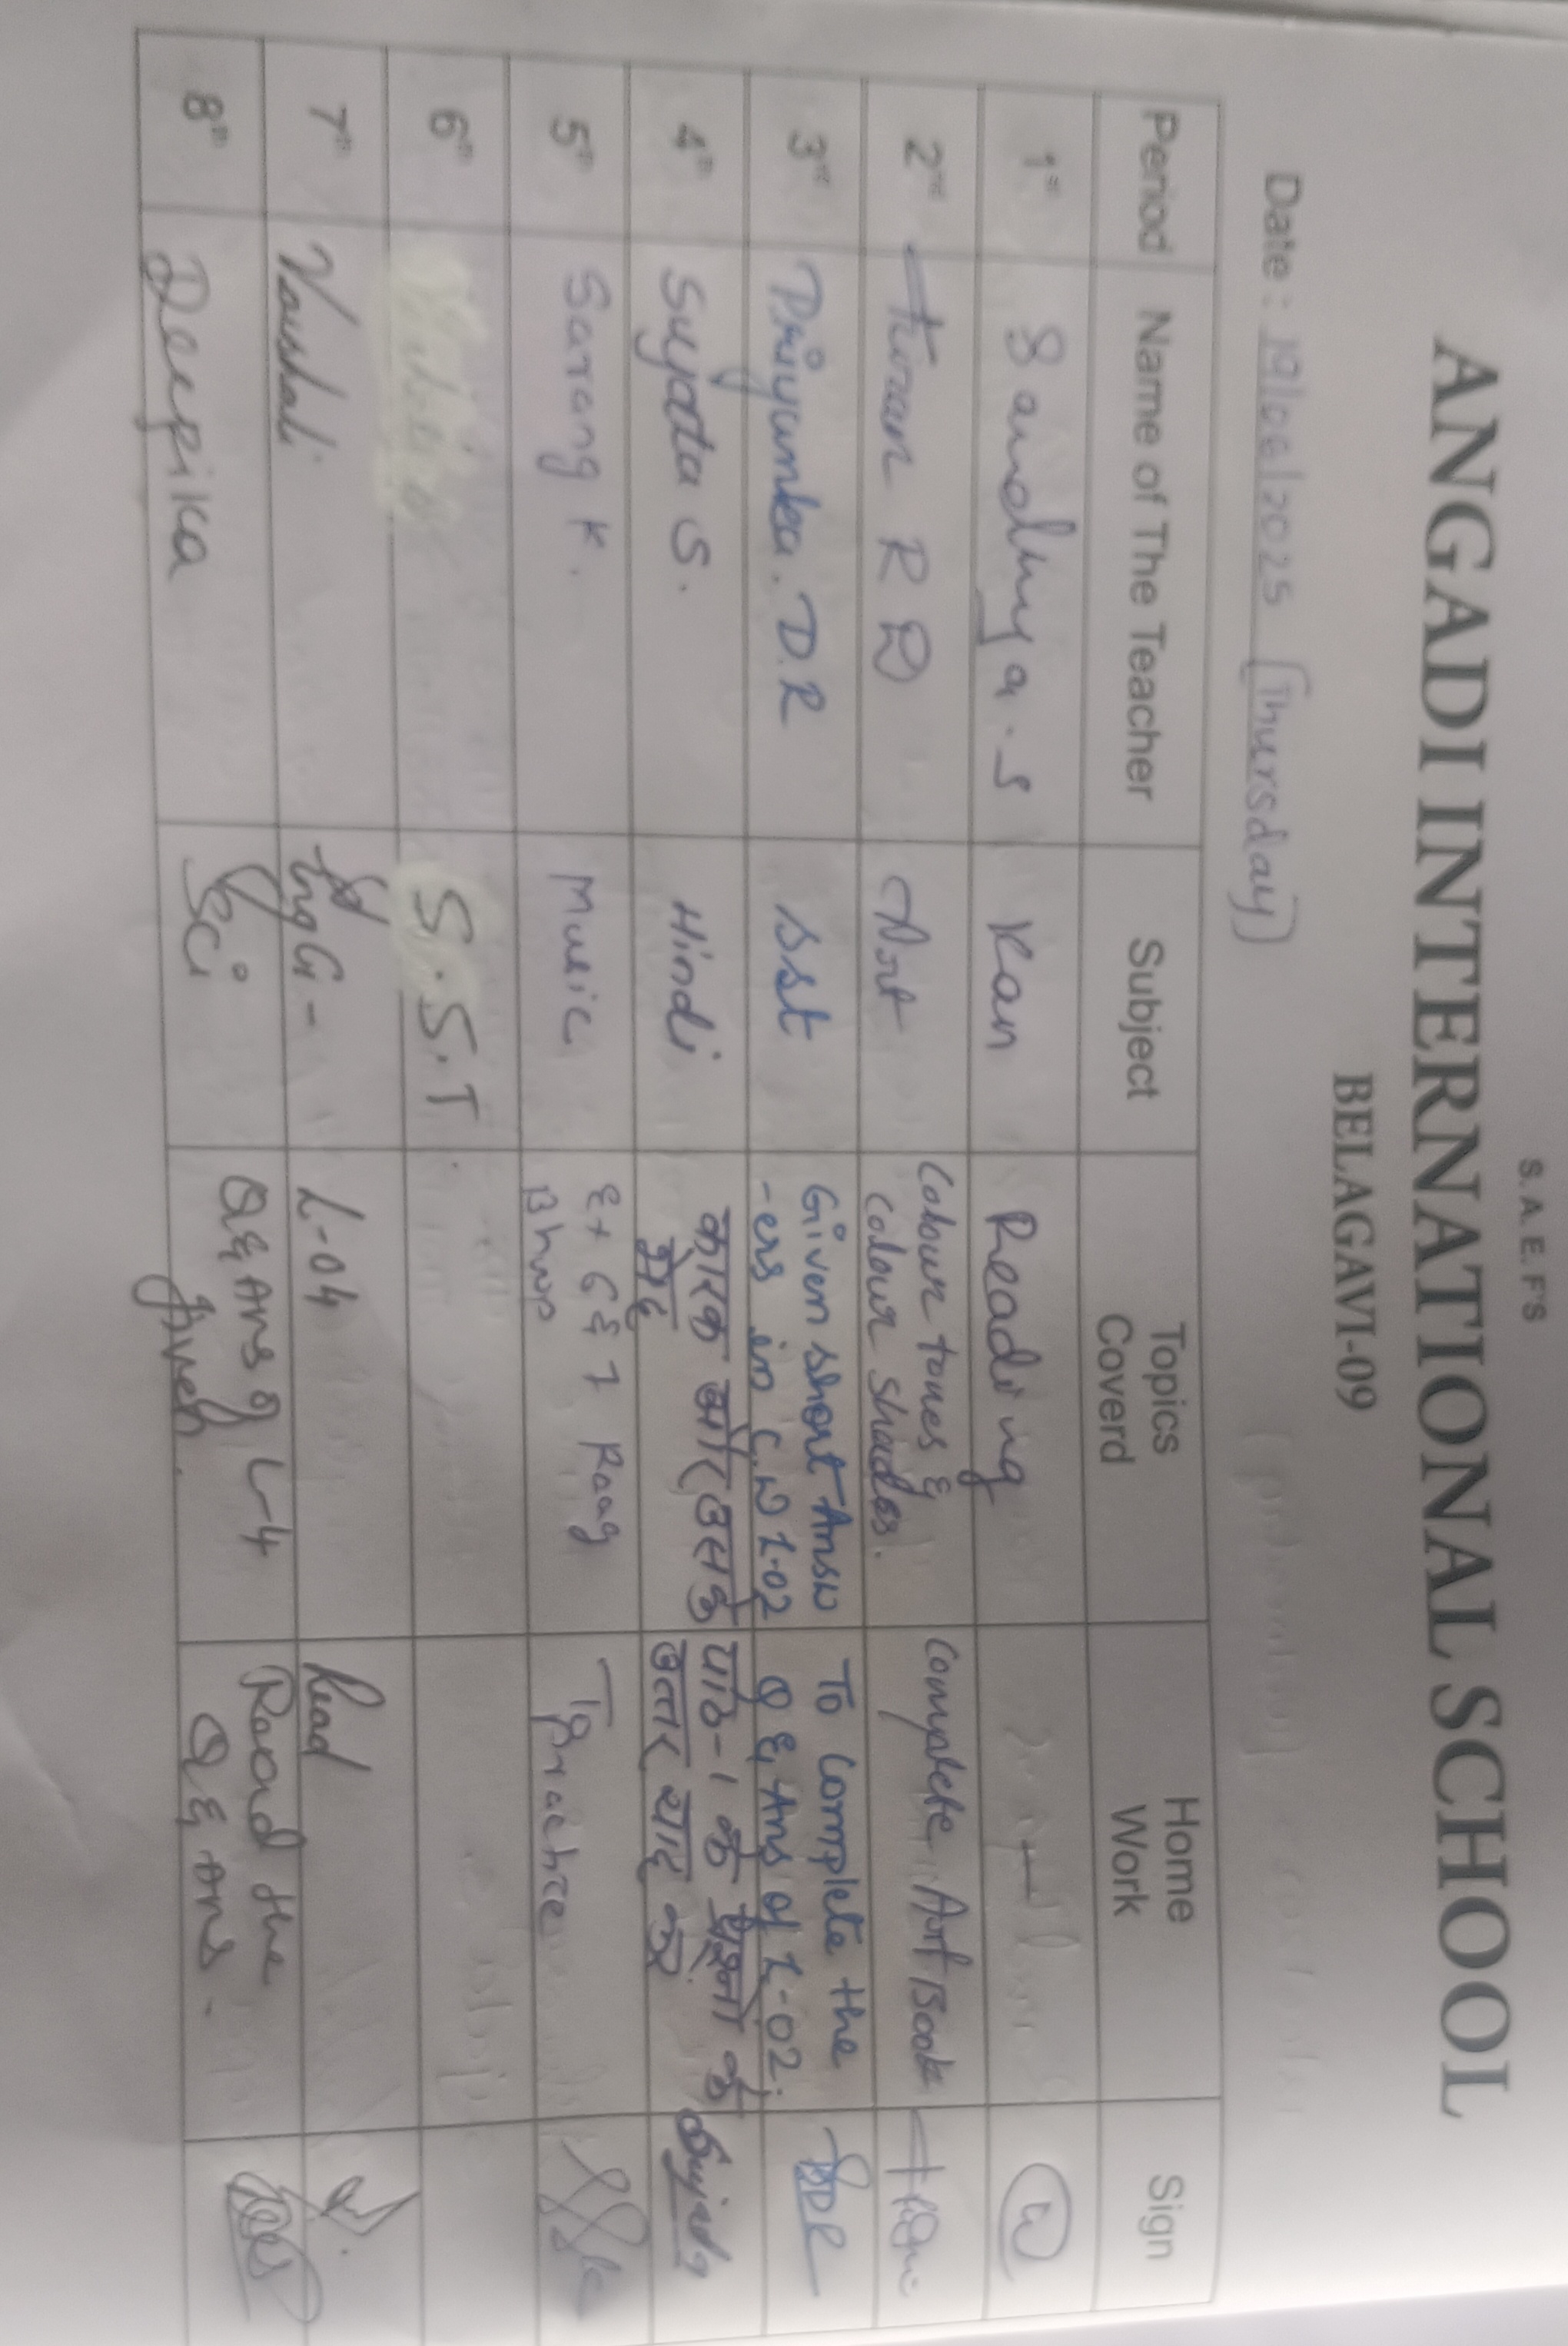 S. A. E. F'S
ANGADI INTERNATIONAL SCHOOL
BELAGAVI-09
Date : 19/06/2025 (Thursday)
Period Name of The Teacher Subject Topics Coverd Home Work Sign
1st Sandhya.S Kan Reading
2nd Kiran R D Art Colour tones & colour shades. Complete Art Book
3rd Priyanka. D.R SSt Given short Answ -ers in C.W L-02 To Complete the Q & Ans of L-02. PDR
4th Sujata S. Hindi कारक और उसके भेद पाठ-1 के प्रश्नों के उत्तर याद करें Sujata
5th Sarang K. Music Ex 6 & 7 Raag Bhup To Practice
6th S.S.T
7th Vaishali L-04 Read
8th Deepika Sci Q & Ans of L-4 given. Read the Q & Ans.